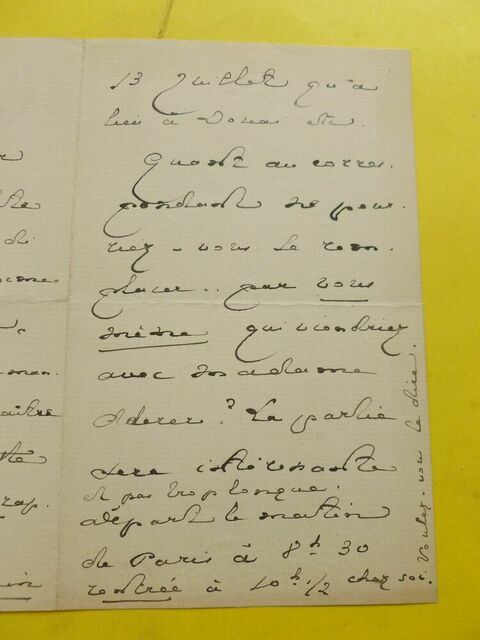 13 Juillet qu'a
lieu à Douai etc.
Quant au corres.
pondant ne pour.
riez-vous le rem
placer.. par vous
même qui viendriez
avec Madame
Aderer? La partie
sera intéressante
et pas trop longue.
départ le matin
de Paris à 8h 30
rentrée à 10h 1/2 chez soi.
Voulez-vous le dire.